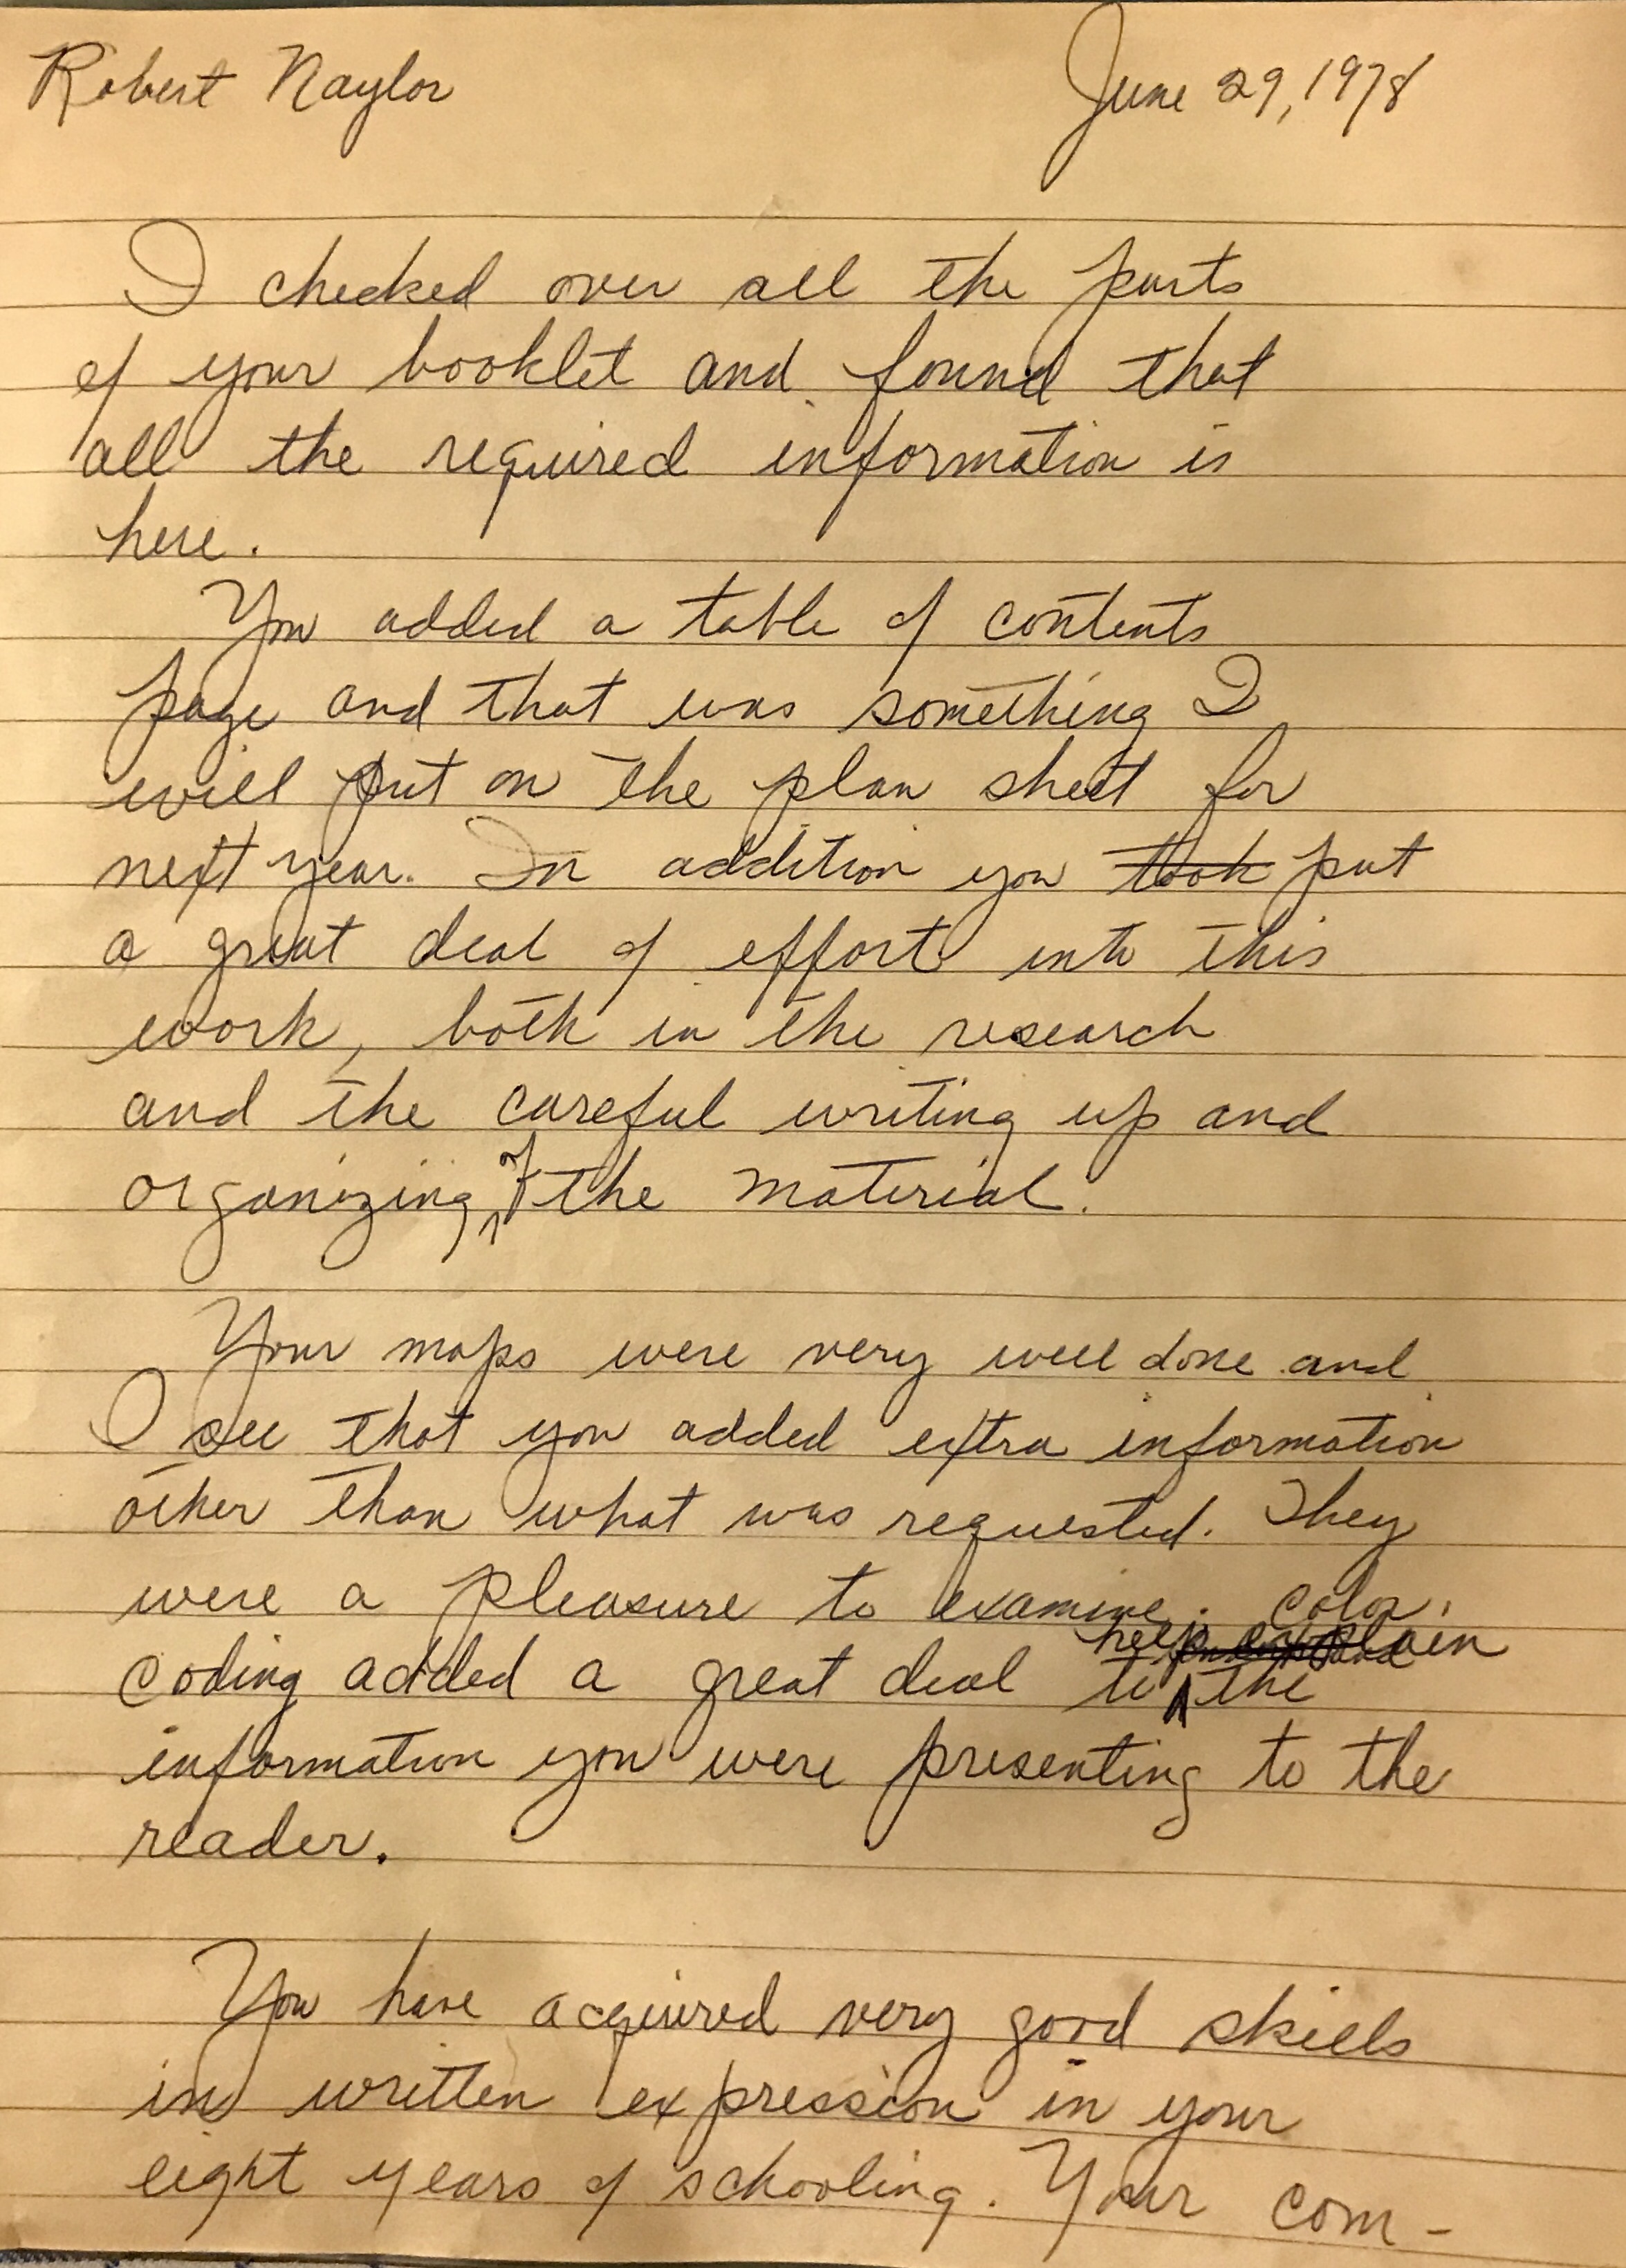 Robert Naylor June 29, 1978
I checked over all the parts
of your booklet and found that
all the required information is
here.
You added a table of contents
page and that was something I
will put on the plan sheet for
next year. In addition you took put
a great deal of effort into this
work, both in the research
and the careful writing up and
organizing of the material.
Your maps were very well done and
I see that you added extra information
other than what was requested. They
were a pleasure to examine. Color
help explain
coding added a great deal to the
information you were presenting to the
reader.
You have acquired very good skills
in written expression in your
eight years of schooling. Your com-